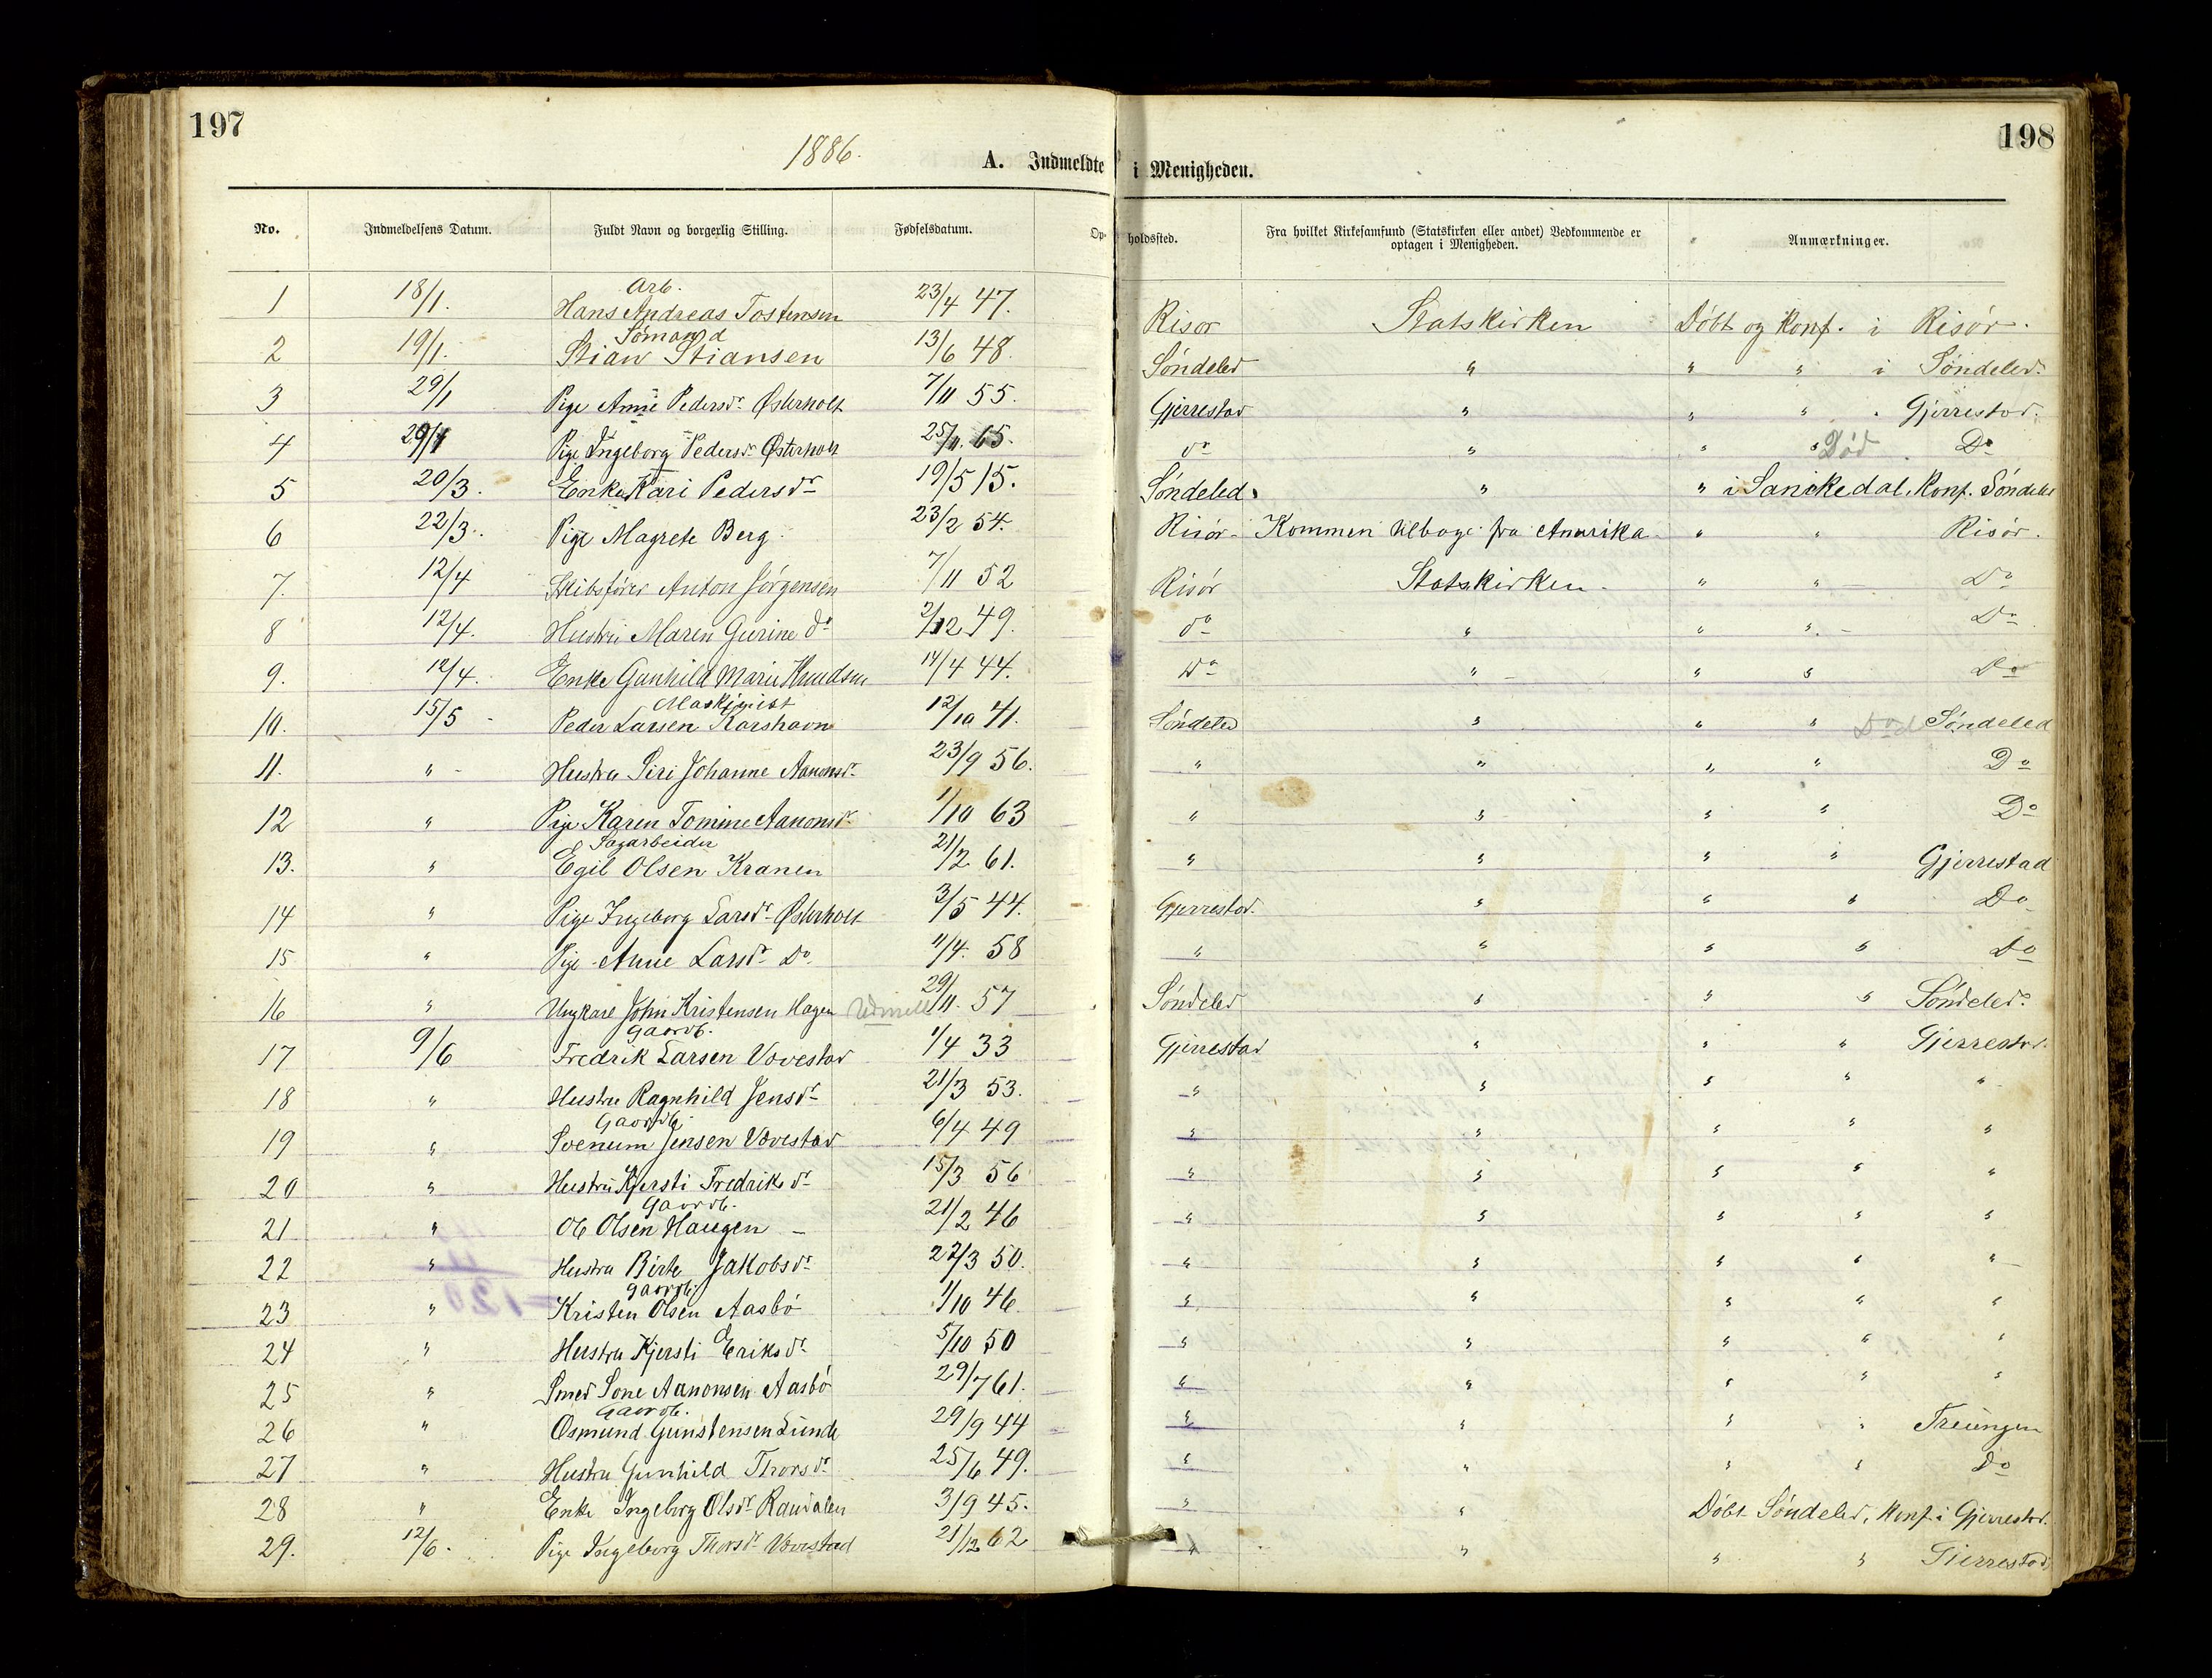 197
198
1886.
A. Indmeldte i Menigheden.
No. Indmeldelsens Datum. Fuldt Navn og borgerlig Stilling. Fødselsdatum. Op- holdssted. Fra hvilket Kirkesamfund (Statskirken eller andet) Vedkommende er optagen i Menigheden. Anmærkninger.
1 18/1. Arb. Hans Andreas Tostensen 23/4 47. Risør Statskirken Döbt og Konf. i Risör.
2 19/1. Sömand Stian Stiansen 13/6 48. Söndeled " " " i Söndeled.
3 29/1 Pige Anne Pedersdr Østerholt 7/11 55. Gjerrestad " " " Gjerrestad.
4 29/1 Pige Ingeborg Pedersdr Østerholt 25/11. 65. do " " " Död. Do
5 20/3. Enke Kari Pedersdr 19/5 15. Söndeled " " i Sanikedal, Konf. Söndeled
6 22/3. Pige Magrete Berg. 23/2 54. Risör Kommen tilbage fra Amerika " " Risör.
7. 12/4 Skibsfører Anton Jörgensen 7/11 52 Risör Statskirken " " Do
8 12/4. Hustru Maren Gurine do 2/12 49. do " " " Do
9. 12/4. Enke Gunhild Marie Knudsen 14/4 44. Do " " " Do
10. 15/5 Maskinist Peder Larsen Korshavn 12/10 41. Söndeled " " " Död Söndeled
11. " Hustru Siri Johanne Aanonsdr 23/9 56. " " " " Do
12 " Pige Karen Tomine Aanonsdr 1/10 63 " " " " Do
13. " Sagarbeider Egil Olsen Kranen 21/2 61. " " " " Gjerrestad
14 " Pige Ingeborg Larsdr Østerholt 3/5 44. Gjerrestad. " " " Do
15 " Pige Anne Larsdr Do 11/4. 58 " " " " Do
16 " Ungkarl John Kristensen Hagen Udmeldt 29/11. 57 Söndeled " " " Söndeled
17 9/6 Gaardb. Fredrik Larsen Vovestad 1/4 33 Gjerrestad " " " Gjerrestad.
18 " Hustru Ragnhild Jensdr 21/3 53. " " " " "
19 " Gaardb. Svenum Jensen Vovestad 6/4 49 " " " " "
20 " Hustru Kjersti Fredriksdr 15/3 56 " " " " "
21 " Gaardb. Ole Olsen Haugen 21/2 46 " " " " "
22 " Hustru Birte Jakobsdr 27/3 50. " " " " "
23 " Gaardb. Kristen Olsen Aasbö 1/10 46 " " " " "
24 " Hustru Kjersti Eriksdr 5/10 50 " " " " "
25 " Smed Sone Aanonsen Aasbö 29/7 61. " " " " "
26 " Gaardb. Osmund Gunstensen Lunde 29/9 44 " " " " Treungen
27 " Hustru Gunhild Thorsdr 25/6 49. " " " " Do
28 " Enke Ingeborg Olsdr Raudalen 3/9 45. " " Döbt Söndeled, Konf. i Gjerrestad.
29. 12/6. Pige Ingeborg Thorsdr Vovestad 21/12 62 " " " " Gjerrestad